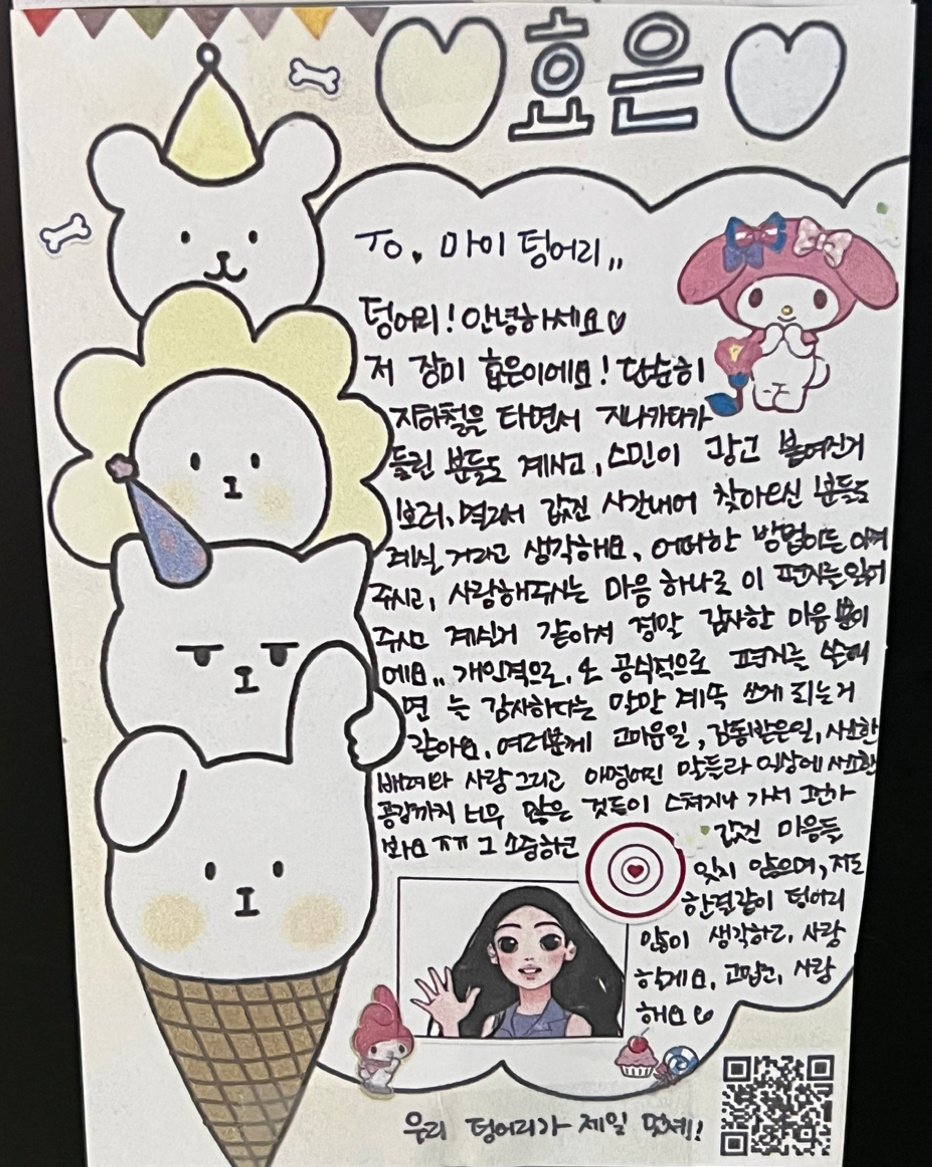 효은
To. 마이 텅어리,,
텅어리! 안녕하세요♡
저 장미 효은이에요! 단순히
지하철을 타면서 지나카타가
들린 분들도 계시고, 스민이 광고 붙여진거
보러, 멀리서 값진 시간내어 찾아오신 분들도
계실 거라고 생각해요, 어떠한 방법이든 이겨
주시고, 사랑해주시는 마음 하나로 이 편지를 읽어
주시고 계신거 같아서 정말 감사한 마음 뿐이
에요,, 개인적으로, 또 공식적으로 편지를 쓸때
면 늘 감사하다는 말만 계속 쓰게 되는거
같아요, 여러분께 고마운일, 감동받은일, 사소한
배려와 사랑 그리고 아껴주신 말들과 일상에 사소한
공감까지 너무 많은 것들이 스쳐지나 가서 그런가
봐요 ㅠㅠ 그 소중하고 값진 마음들
잊지 않으며, 저도
한결같이 텅어리
많이 생각하고, 사랑
할게요, 고맙고, 사랑
해요♡
우리 텅어리가 제일 멋져!